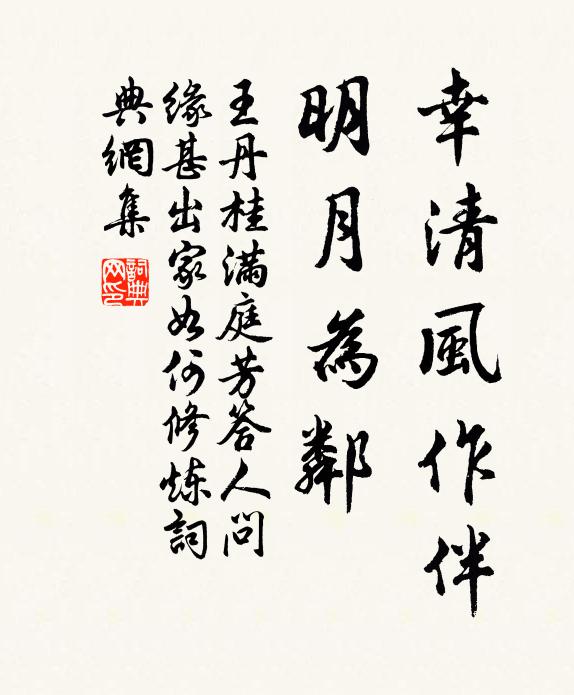 幸清風作伴
明月為鄰
王丹桂滿庭芳答人問
緣甚出家如何修炼詞
典網集
詞典网印